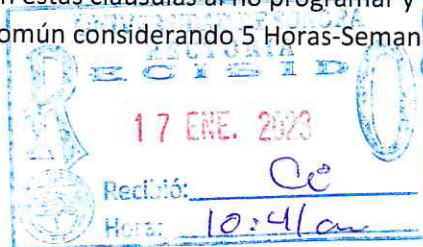 estas cláusulas al no programar y
omún considerando 5 Horas-Seman
RECTORIA
RECIBIDO
17 ENE. 2023
Recibió:
Hora: 10:41 am